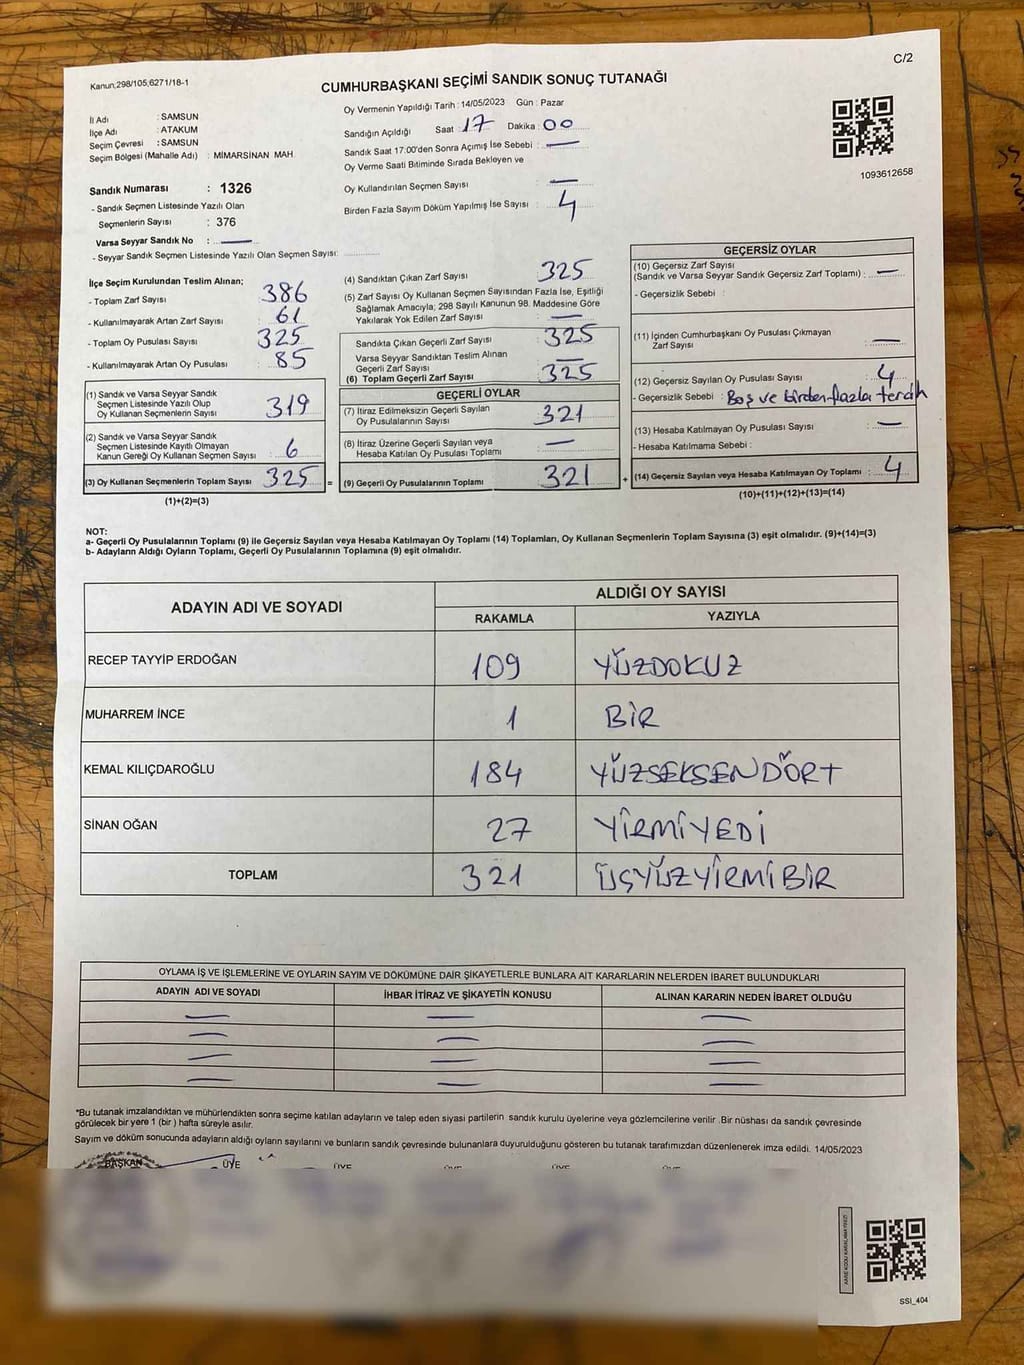 Kanun;298/105;6271/18-1
C/2
CUMHURBAŞKANI SEÇİMİ SANDIK SONUÇ TUTANAĞI
İl Adı : SAMSUN
İlçe Adı : ATAKUM
Seçim Çevresi : SAMSUN
Seçim Bölgesi (Mahalle Adı) : MİMARSİNAN MAH.
Sandık Numarası : 1326
- Sandık Seçmen Listesinde Yazılı Olan
Seçmenlerin Sayısı : 376
Varsa Seyyar Sandık No : —
- Seyyar Sandık Seçmen Listesinde Yazılı Olan Seçmen Sayısı:
Oy Vermenin Yapıldığı Tarih : 14/05/2023 Gün : Pazar
Sandığın Açıldığı Saat : 17 Dakika : 00
Sandık Saat 17:00'den Sonra Açımış İse Sebebi : —
Oy Verme Saati Bitiminde Sırada Bekleyen ve
Oy Kullandırılan Seçmen Sayısı : —
Birden Fazla Sayım Döküm Yapılmış İse Sayısı : 4
1093612658
İlçe Seçim Kurulundan Teslim Alınan;
- Toplam Zarf Sayısı : 386
- Kullanılmayarak Artan Zarf Sayısı : 61
- Toplam Oy Pusulası Sayısı : 325
- Kullanılmayarak Artan Oy Pusulası : 85
(1) Sandık ve Varsa Seyyar Sandık
Seçmen Listesinde Yazılı Olup
Oy Kullanan Seçmenlerin Sayısı : 319
(2) Sandık ve Varsa Seyyar Sandık
Seçmen Listesinde Kayıtlı Olmayan
Kanun Gereği Oy Kullanan Seçmen Sayısı : 6
(3) Oy Kullanan Seçmenlerin Toplam Sayısı : 325 =
(1)+(2)=(3)
(4) Sandıktan Çıkan Zarf Sayısı : 325
(5) Zarf Sayısı Oy Kullanan Seçmen Sayısından Fazla İse, Eşitliği
Sağlamak Amacıyla; 298 Sayılı Kanunun 98. Maddesine Göre
Yakılarak Yok Edilen Zarf Sayısı : —
Sandıkta Çıkan Geçerli Zarf Sayısı : 325
Varsa Seyyar Sandıktan Teslim Alınan
Geçerli Zarf Sayısı : —
(6) Toplam Geçerli Zarf Sayısı : 325
GEÇERLİ OYLAR
(7) İtiraz Edilmeksizin Geçerli Sayılan
Oy Pusulalarının Sayısı : 321
(8) İtiraz Üzerine Geçerli Sayılan veya
Hesaba Katılan Oy Pusulası Toplamı : —
(9) Geçerli Oy Pusulalarının Toplamı : 321 +
GEÇERSİZ OYLAR
(10) Geçersiz Zarf Sayısı
(Sandık ve Varsa Seyyar Sandık Geçersiz Zarf Toplamı) : —
- Geçersizlik Sebebi :
(11) İçinden Cumhurbaşkanı Oy Pusulası Çıkmayan
Zarf Sayısı : —
(12) Geçersiz Sayılan Oy Pusulası Sayısı : 4
- Geçersizlik Sebebi : Boş ve birden fazla tercih
(13) Hesaba Katılmayan Oy Pusulası Sayısı : —
- Hesaba Katılmama Sebebi :
(14) Geçersiz Sayılan veya Hesaba Katılmayan Oy Toplamı : 4
(10)+(11)+(12)+(13)=(14)
NOT:
a- Geçerli Oy Pusulalarının Toplamı (9) ile Geçersiz Sayılan veya Hesaba Katılmayan Oy Toplamı (14) Toplamları, Oy Kullanan Seçmenlerin Toplam Sayısına (3) eşit olmalıdır. (9)+(14)=(3)
b- Adayların Aldığı Oyların Toplamı, Geçerli Oy Pusulalarının Toplamına (9) eşit olmalıdır.
ADAYIN ADI VE SOYADI
ALDIĞI OY SAYISI
RAKAMLA YAZIYLA
RECEP TAYYİP ERDOĞAN 109 YÜZDOKUZ
MUHARREM İNCE 1 BİR
KEMAL KILIÇDAROĞLU 184 YÜZSEKSENDÖRT
SİNAN OĞAN 27 YİRMİYEDİ
TOPLAM 321 ÜÇYÜZYİRMİBİR
OYLAMA İŞ VE İŞLEMLERİNE VE OYLARIN SAYIM VE DÖKÜMÜNE DAİR ŞİKAYETLERLE BUNLARA AİT KARARLARIN NELERDEN İBARET BULUNDUKLARI
ADAYIN ADI VE SOYADI İHBAR İTİRAZ VE ŞİKAYETİN KONUSU ALINAN KARARIN NEDEN İBARET OLDUĞU
— — —
— — —
— — —
— — —
*Bu tutanak imzalandıktan ve mühürlendikten sonra seçime katılan adayların ve talep eden siyasi partilerin sandık kurulu üyelerine veya gözlemcilerine verilir .Bir nüshası da sandık çevresinde
görülecek bir yere 1 (bir ) hafta süreyle asılır.
Sayım ve döküm sonucunda adayların aldığı oyların sayılarını ve bunların sandık çevresinde bulunanlara duyurulduğunu gösteren bu tutanak tarafımızdan düzenlenerek imza edildi. 14/05/2023
BAŞKAN ÜYE ÜYE ÜYE ÜYE ÜYE
SSİ_404